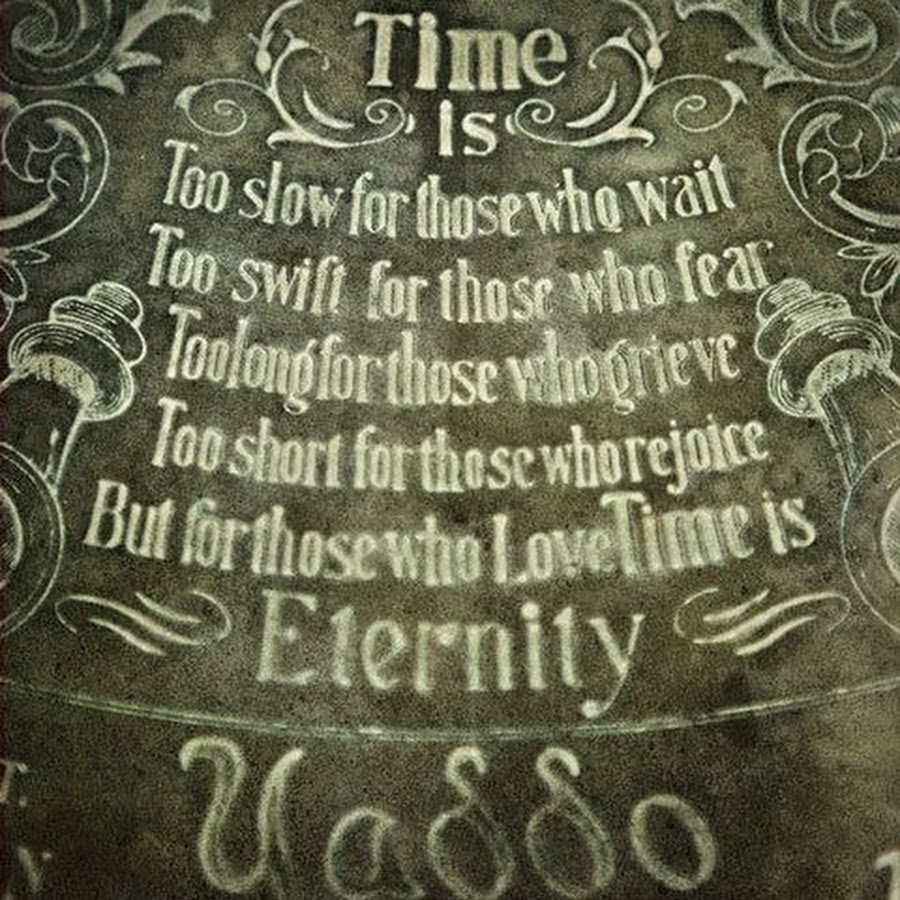 Time
is
Too slow for those who wait
Too swift for those who fear
Too long for those who grieve
Too short for those who rejoice
But for those who Love Time is
Eternity
Yaddo